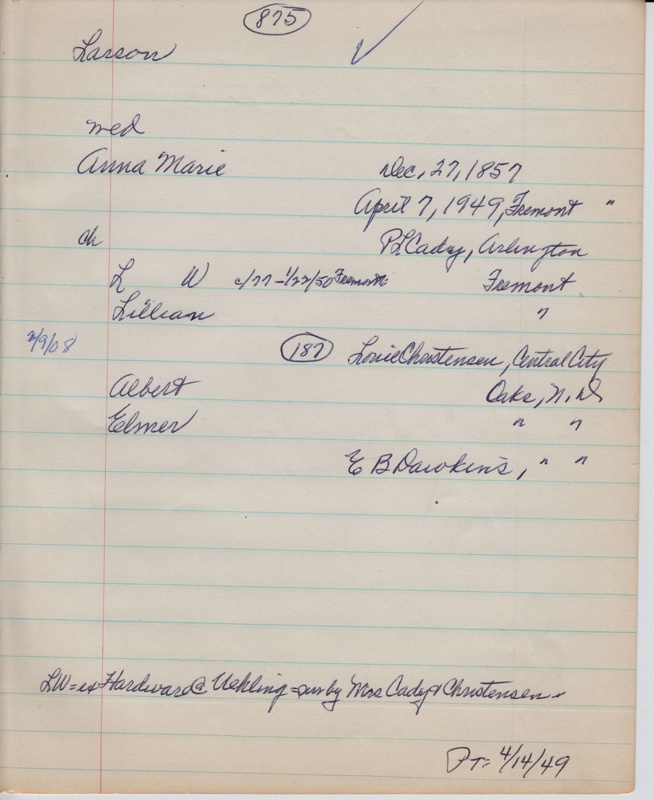 875
Larson
med
Anna Marie Dec, 27, 1857
April 7, 1949, Fremont "
ch P L Cady, Arlington
L W c/77 - 1/22/50 Fremont Fremont
Lillian "
2/9/08 187 Louie Christensen, Central City
Albert Oaks, N.D
Elmer " "
E B Dawkins, " "
LW = ex Hardware @ Uehling = sur by Mrs Cady & Christensen
PT = 4/14/49